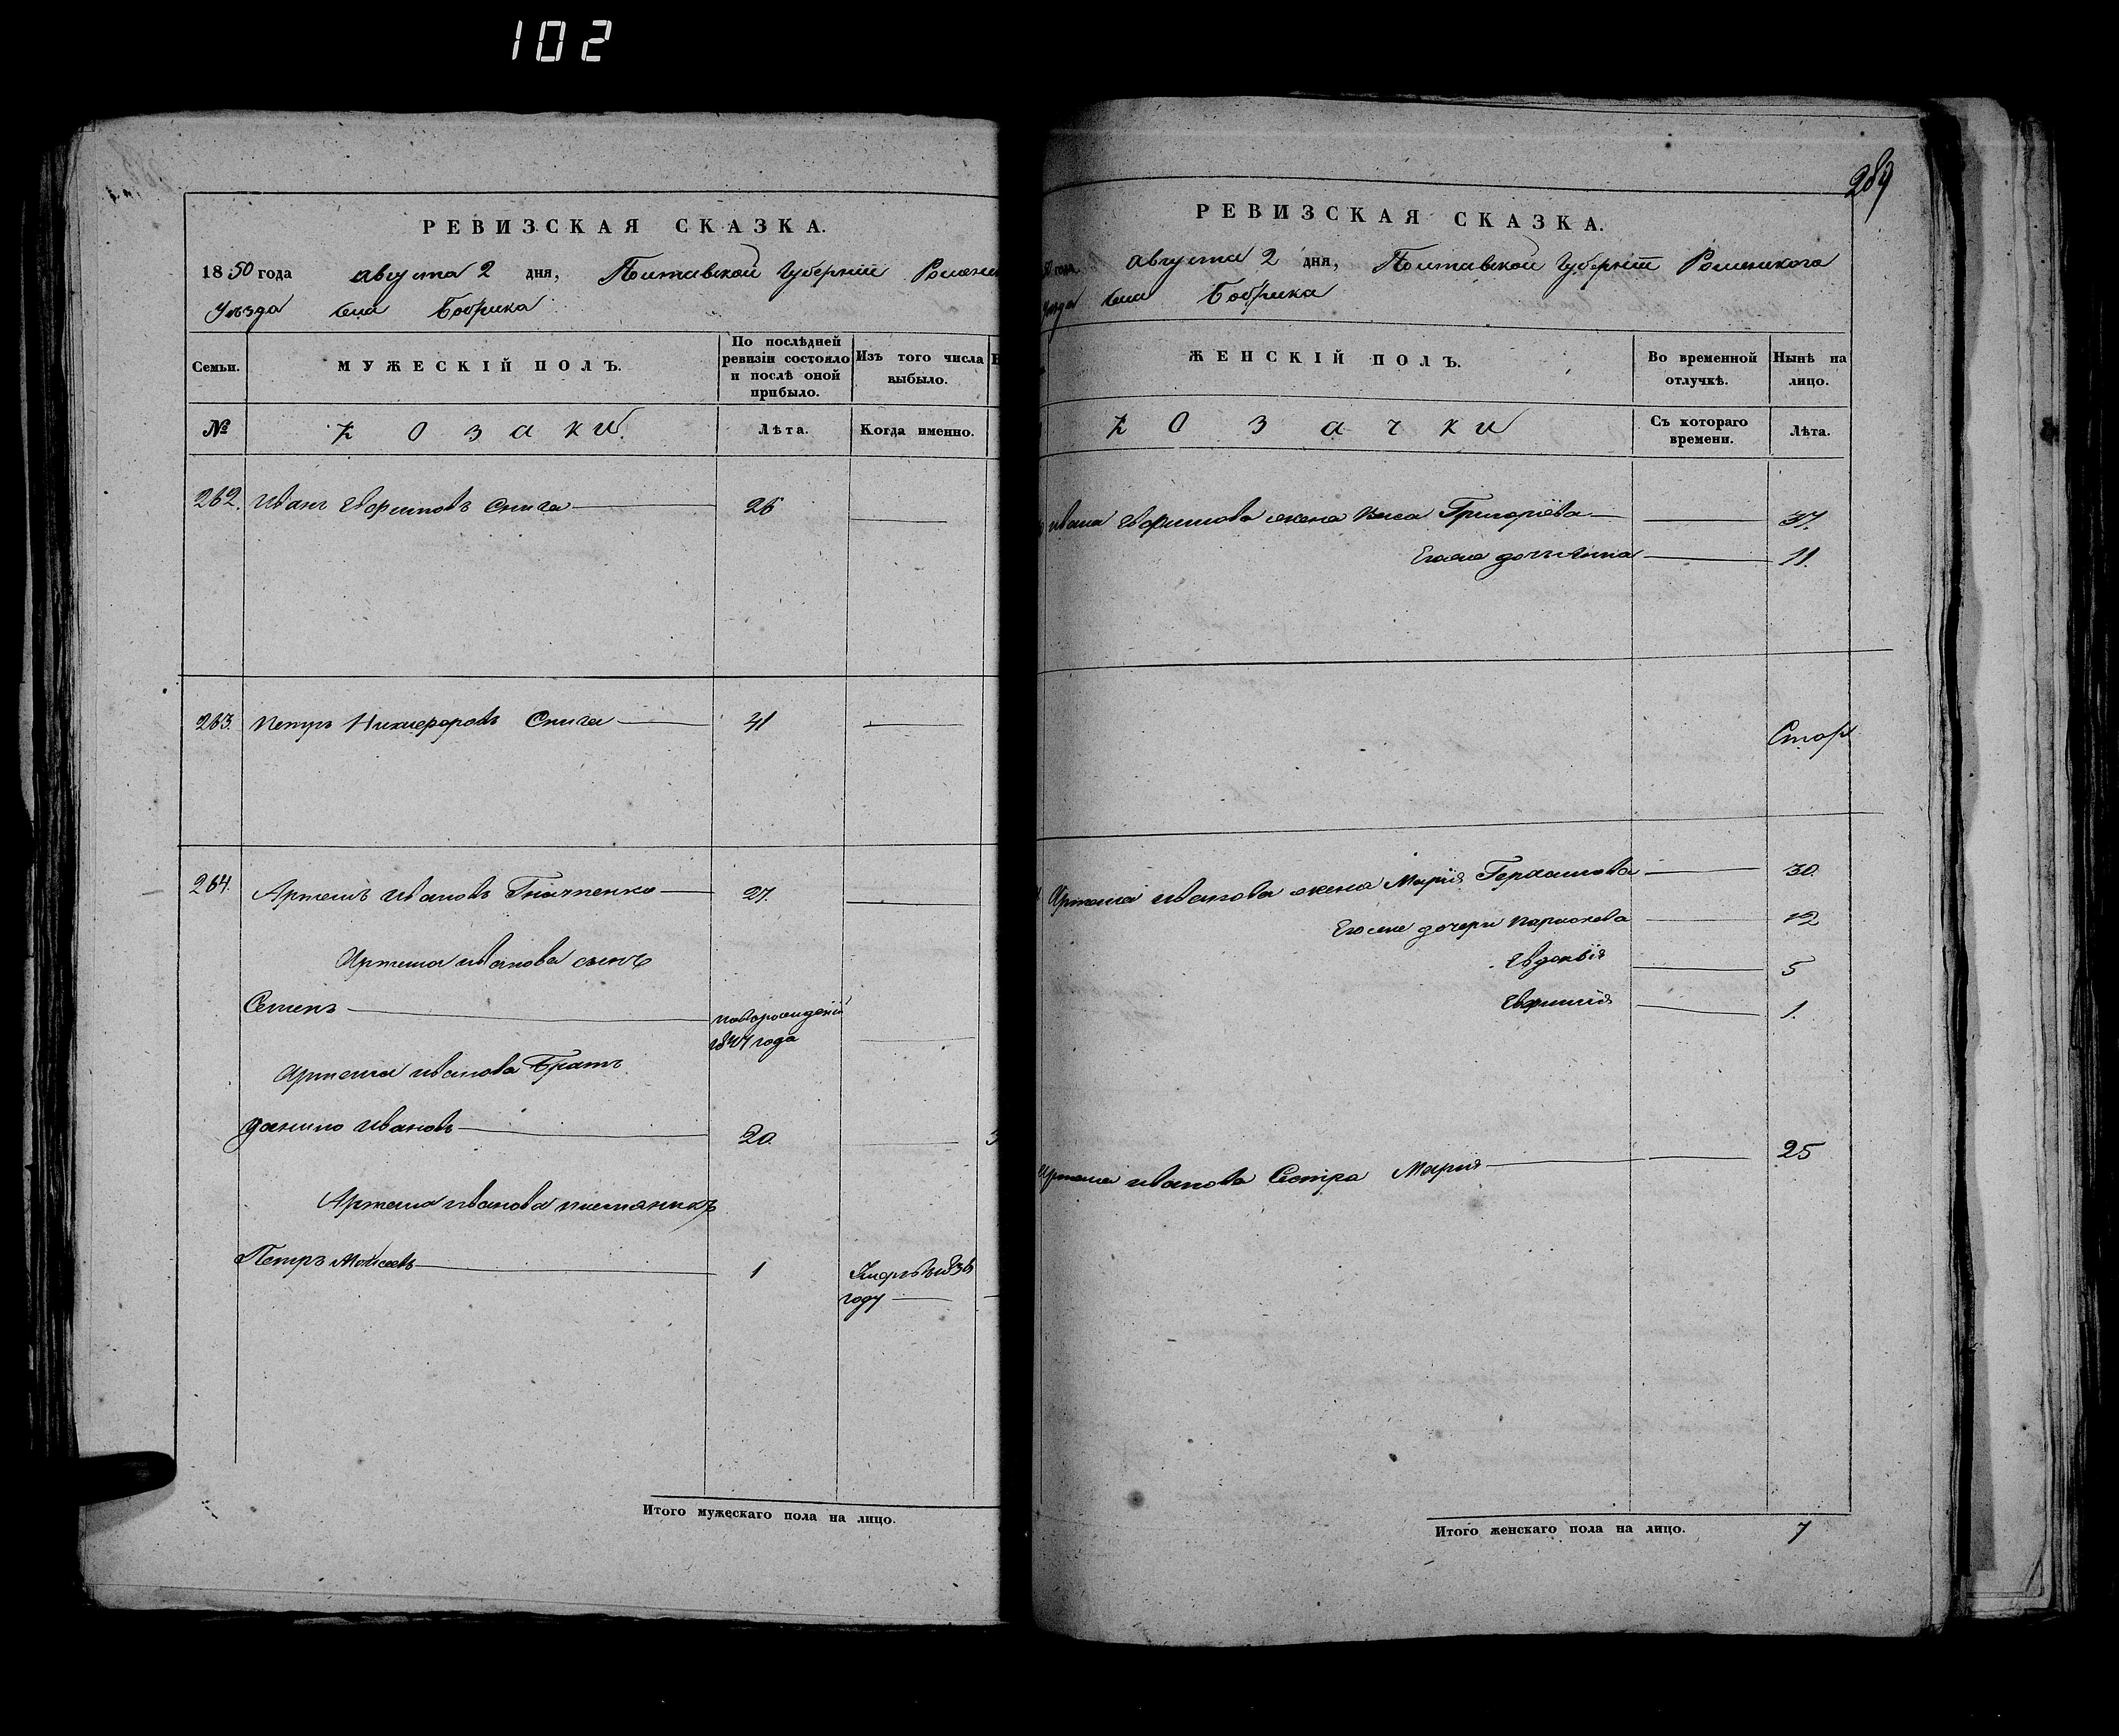 102
РЕВИЗСКАЯ СКАЗКА.
1850 года августа 2 дня, Полтавской Губернiи Роменс
Уѣзда села Бобрика
Семьи.
МУЖЕСКIЙ ПОЛЪ.
По послѣдней ревизiи состояло и послѣ оной прибыло.
Изъ того числа выбыло.
№
Козаки
Лѣта.
Когда именно.
262. Иванъ Евфимовъ Снига 26
263. Петръ Никифоровъ Снига 41
264. Артемъ Ивановъ 27.
Артема Иванова сынъ
Семенъ новорожденій
1847 года
Артема Иванова Братъ
Данило Ивановъ 20.
Артема Иванова племянникъ
Петръ Мойсеевъ 1 Умеръ въ 1836
году
Итого мужескаго пола на лицо.
289
РЕВИЗСКАЯ СКАЗКА.
50 года августа 2 дня, Полтавской Губернiи Роменскаго
Уѣзда села Бобрика
ЖЕНСКIЙ ПОЛЪ.
Во временной отлучкѣ.
Нынѣ на лицо.
Козачки
Съ котораго времени.
Лѣта.
Ивана Евфимова жена Григорiева 37.
Егоже дочь Анна 11.
Артема Иванова жена Марiя 30.
Егоже дочери Парасковiя 12
Евдокiя 5
Евфимiя 1.
Артема Иванова Сестра Марiя 25
Итого женскаго пола на лицо. 7